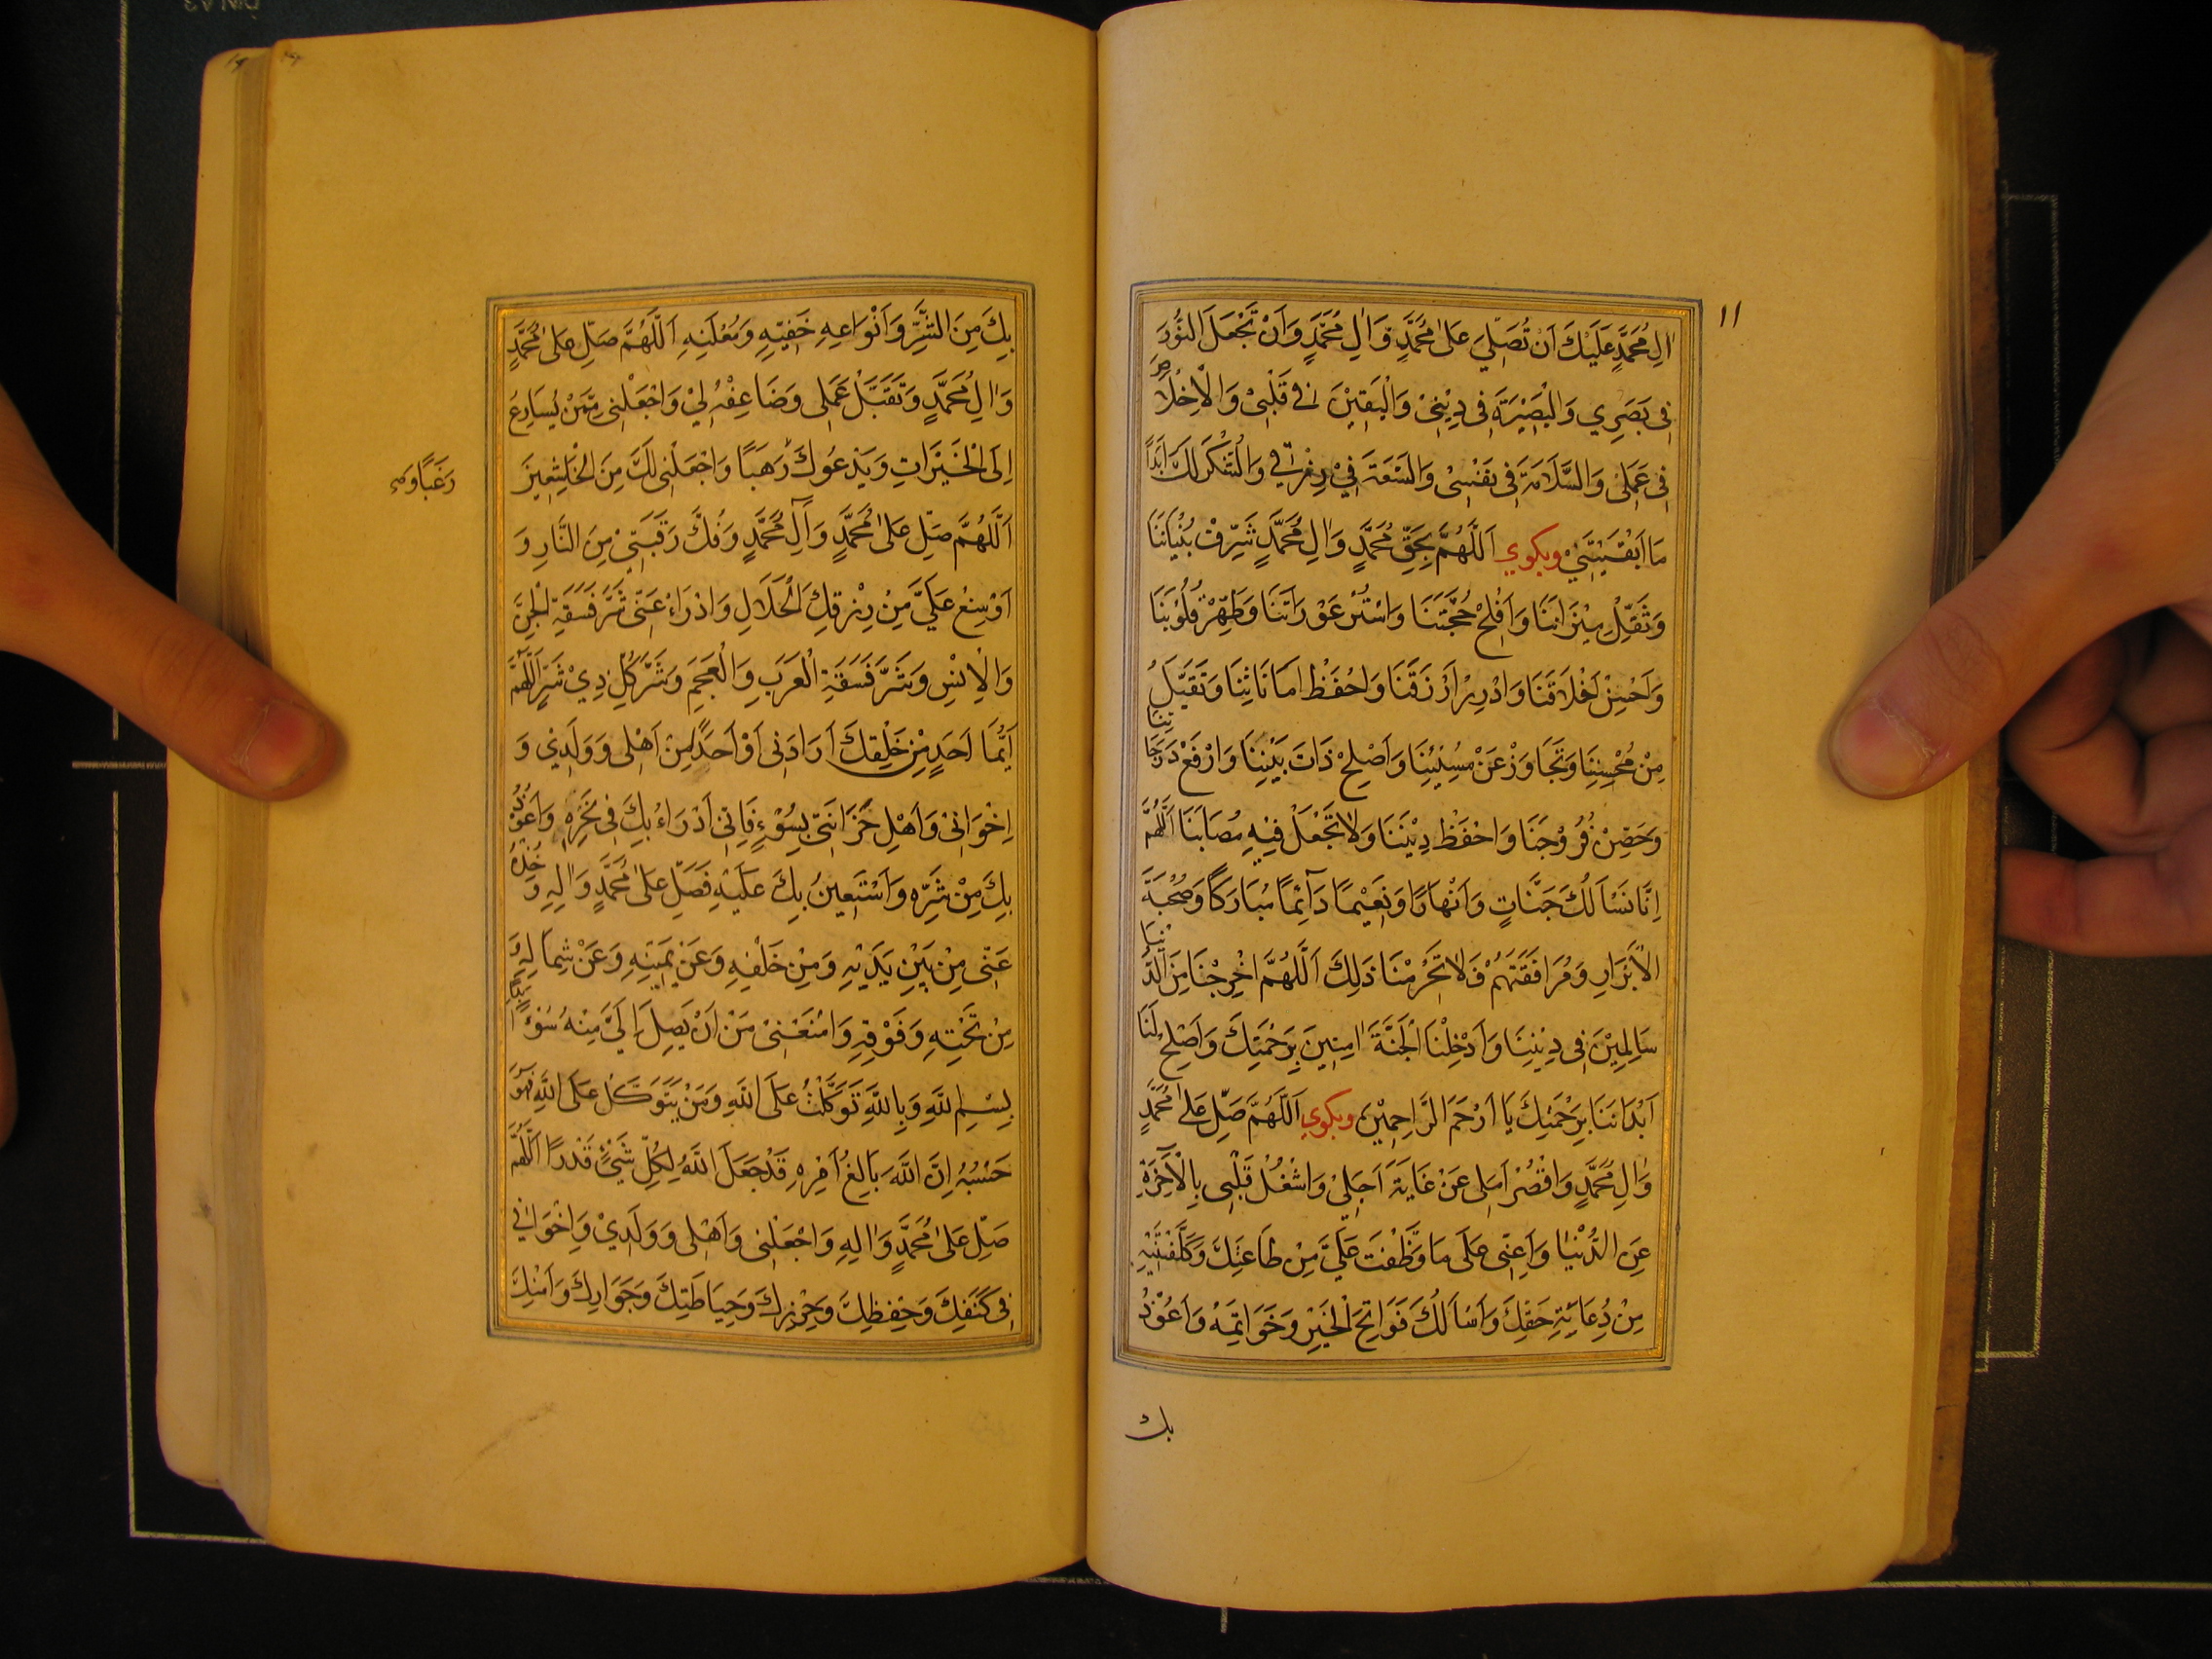 ١١
اٰلِ مُحَمَّدٍ عَلَيْكَ اَنْ تُصَلِّيَ عَلٰى مُحَمَّدٍ وَاٰلِ مُحَمَّدٍ وَاَنْ تَجْعَلَ النُّورَ
فِى بَصَرِي وَالْبَصِيْرَةَ فِى دِيْنِىْ وَالْيَقِيْنَ فِى قَلْبِىْ وَالْاِخْلَاصَ
فِى عَمَلِىْ وَالسَّلَامَةَ فِى نَفْسِىْ وَالسَّعَةَ فِيْ رِزْقِي وَالشُّكْرَ لَكَ اَبَدًا
مَا اَبْقَيْتَنِيْ وبكوي اَللّٰهُمَّ بِحَقِّ مُحَمَّدٍ وَاٰلِ مُحَمَّدٍ شَرِّفْ بُنْيَانَنَا
وَثَقِّلْ مِيْزَانَنَا وَاَفْلِحْ حُجَّتَنَا وَاسْتُرْ عَوْرَاتَنَا وَطَهِّرْ قُلُوْبَنَا
وَاَحْسِنْ اَخْلَاقَنَا وَادْرِرْ اَرْزَقَنَا وَاحْفَظْ اَمَانَاتِنَا وَتَقَبَّلْ
مِنْ مُحْسِنِنَا وَتَجَاوَزْ عَنْ مُسِيْئِنَا وَاَصْلِحْ ذَاتَ بَيْنِنَا وَارْفَعْ دَرَجَاتِنَا
وَحَصِّنْ فُرُوْجَنَا وَاحْفَظْ دِيْنَنَا وَلَا تَجْعَلْ فِيْهِ مُصَابَنَا اَللّٰهُمَّ
اِنَّا نَسْاَلُكَ جَنَّاتٍ وَاَنْهَارًا وَنَعِيْمًا دَآئِمًا مُبَارَكًا وَصُحْبَةَ
الْاَبْرَارِ وَمُرَافَقَتَهُمْ فَلَا تَحْرِمْنَا ذٰلِكَ اَللّٰهُمَّ اَخْرِجْنَا مِنَ الدُّنْيَا
سَالِمِيْنَ فِى دِيْنِنَا وَاَدْخِلْنَا الْجَنَّةَ اٰمِنِيْنَ بِرَحْمَتِكَ وَاَصْلِحْ لَنَا
اَبْدَانَنَا بِرَحْمَتِكَ يَا اَرْحَمَ الرَّاحِمِيْنَ وبكوي اَللّٰهُمَّ صَلِّ عَلٰى مُحَمَّدٍ
وَاٰلِ مُحَمَّدٍ وَاقْصُرْ اَمَلِى عَنْ غَايَةِ اَجَلِيْ وَاشْغُلْ قَلْبِى بِالْاٰخِرَةِ
عَنِ الدُّنْيَا وَاَعِنِّى عَلٰى مَا وَظَّفْتَ عَلَيَّ مِنْ طَاعَتِكَ وَكَلَّفْتَنِيْهِ
مِنْ رِعَايَةِ حَقِّكَ وَاَسْاَلُكَ فَوَاتِحَ الْخَيْرِ وَخَوَاتِمَهُ وَاَعُوْذُ
بك
بِكَ مِنَ الشَّرِّ وَاَنْوَاعِهِ خَفِيِّهِ وَمُعْلَنِهِ اَللّٰهُمَّ صَلِّ عَلٰى مُحَمَّدٍ
وَاٰلِ مُحَمَّدٍ وَتَقَبَّلْ عَمَلِى وَضَاعِفْهُ لِيْ وَاجْعَلْنِى مِمَّنْ يُسَارِعُ
اِلَى الْخَيْرَاتِ وَيَدْعُوكَ رَهَبًا وَاجْعَلْنِى لَكَ مِنَ الْخَاشِعِيْنَ
رَغَبًا وَ
اَللّٰهُمَّ صَلِّ عَلٰى مُحَمَّدٍ وَآلِ مُحَمَّدٍ وَفُكَّ رَقَبَتِيْ مِنَ النَّارِ وَ
اَوْسِعْ عَلَيَّ مِنْ رِزْقِكَ الْحَلَالِ وَادْرَاْ عَنِّى شَرَّ فَسَقَةِ الْجِنِّ
وَالْاِنْسِ وَشَرَّ فَسَقَةِ الْعَرَبِ وَالْعَجَمِ وَشَرَّ كُلِّ ذِيْ شَرٍّ اَللّٰهُمَّ
اَيُّمَا اَحَدٍ مِنْ خَلْقِكَ اَرَادَنِى اَوْ اَحَدًا مِنْ اَهْلِى وَوَلَدِيْ وَ
اِخْوَانِىْ وَاَهْلِ حُزَانَتِىْ بِسُوْءٍ فَاِنِّىْ اَدْرَاُ بِكَ فِى نَحْرِهٖ وَاَعُوْذُ
بِكَ مِنْ شَرِّهٖ وَاَسْتَعِيْنُ بِكَ عَلَيْهِ فَصَلِّ عَلٰى مُحَمَّدٍ وَاٰلِهِ وَخُذْهُ
عَنِّى مِنْ بَيْنِ يَدَيْهِ وَمِنْ خَلْفِهِ وَعَنْ يَمِيْنِهِ وَعَنْ شِمَالِهِ وَ
مِنْ تَحْتِهِ وَفَوْقِهِ وَامْنَعْنِىْ مَنْ اَنْ يَصِلَ اِلَيَّ مِنْهُ سُوْءٌ اَبَدًا
بِسْمِ اللّٰهِ وَبِاللّٰهِ تَوَكَّلْتُ عَلَى اللّٰهِ وَمَنْ يَتَوَكَّلْ عَلَى اللّٰهِ فَهُوَ
حَسْبُهُ اِنَّ اللّٰهَ بَالِغُ اَمْرِهِ قَدْ جَعَلَ اللّٰهُ لِكُلِّ شَيْءٍ قَدْرًا اَللّٰهُمَّ
صَلِّ عَلٰى مُحَمَّدٍ وَاٰلِهِ وَاجْعَلْنِى وَاَهْلِى وَوَلَدِيْ وَاِخْوَانِي
فِى كَنَفِكَ وَحِفْظِكَ وَحِرْزِكَ وَحِيَاطَتِكَ وَجَوَارِكَ وَاَمْنِكَ